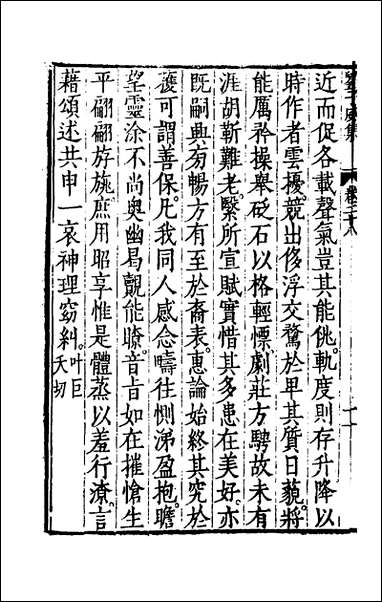 近而促各載聲氣豈其能佻軌度則存升降以
時作者雲擾競出侈浮交騖於卑其質日藐將
能厲矜操舉砭石以格輕慓劇莊方騁故未有
涯胡靳難老繄所宣賦實惜其多患在美好亦
既嗣典暢方有至於裔表惠論始終其究於
護可謂善保凡我同人感念疇往惻涕盈抱瞻
望靈涂不尚奥幽曷覿能瞭音旨如在摧愴生
平翩翩斿旐庶用昭享惟是體蒸以羞行潦言
藉頌述共申一哀神理窈糾叶巨夭切